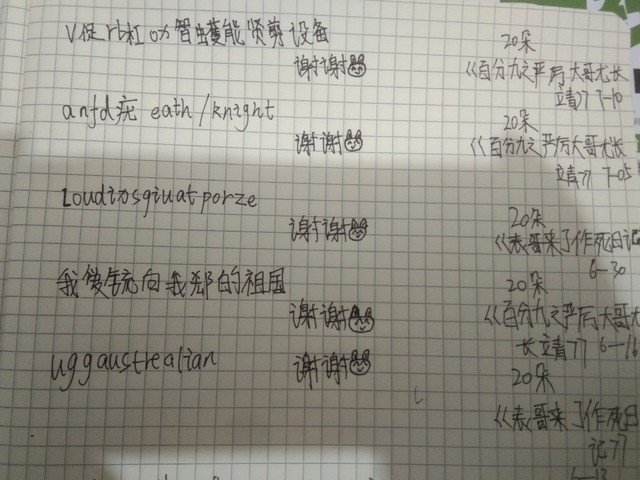 V促rb杠ox智虫蠖能贤剪设备
谢谢 20朵
《百分九之严厉大哥尤长
立靖》7-10
anfd疣 eath/knight
谢谢 20朵
《百分九之严厉大哥尤长
立靖》7-05
Loudinsgiuatporze
谢谢 20朵
《表哥来了作死日记
6-30
我 向我 的祖国
谢谢 20朵
《百分九之严厉大哥尤
长立靖》6-16
uggaustrealian
谢谢 20朵
《表哥来了作死日
记》
6-13